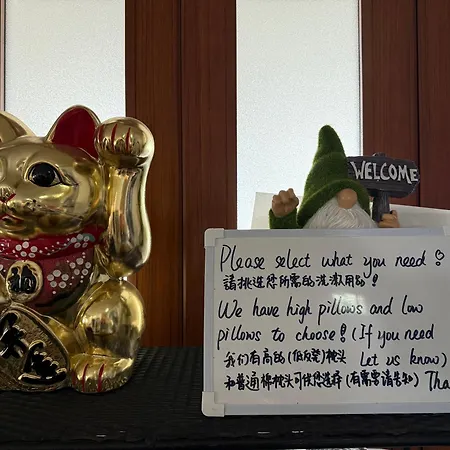 WELCOME
Please select what you need!
請挑选您所需的洗漱用品!
We have high pillows and low
pillows to choose! (If you need
我们有高的(低反发)枕头 Let us know)
和普通棉枕头可供您选择(有需要请告知) Tha